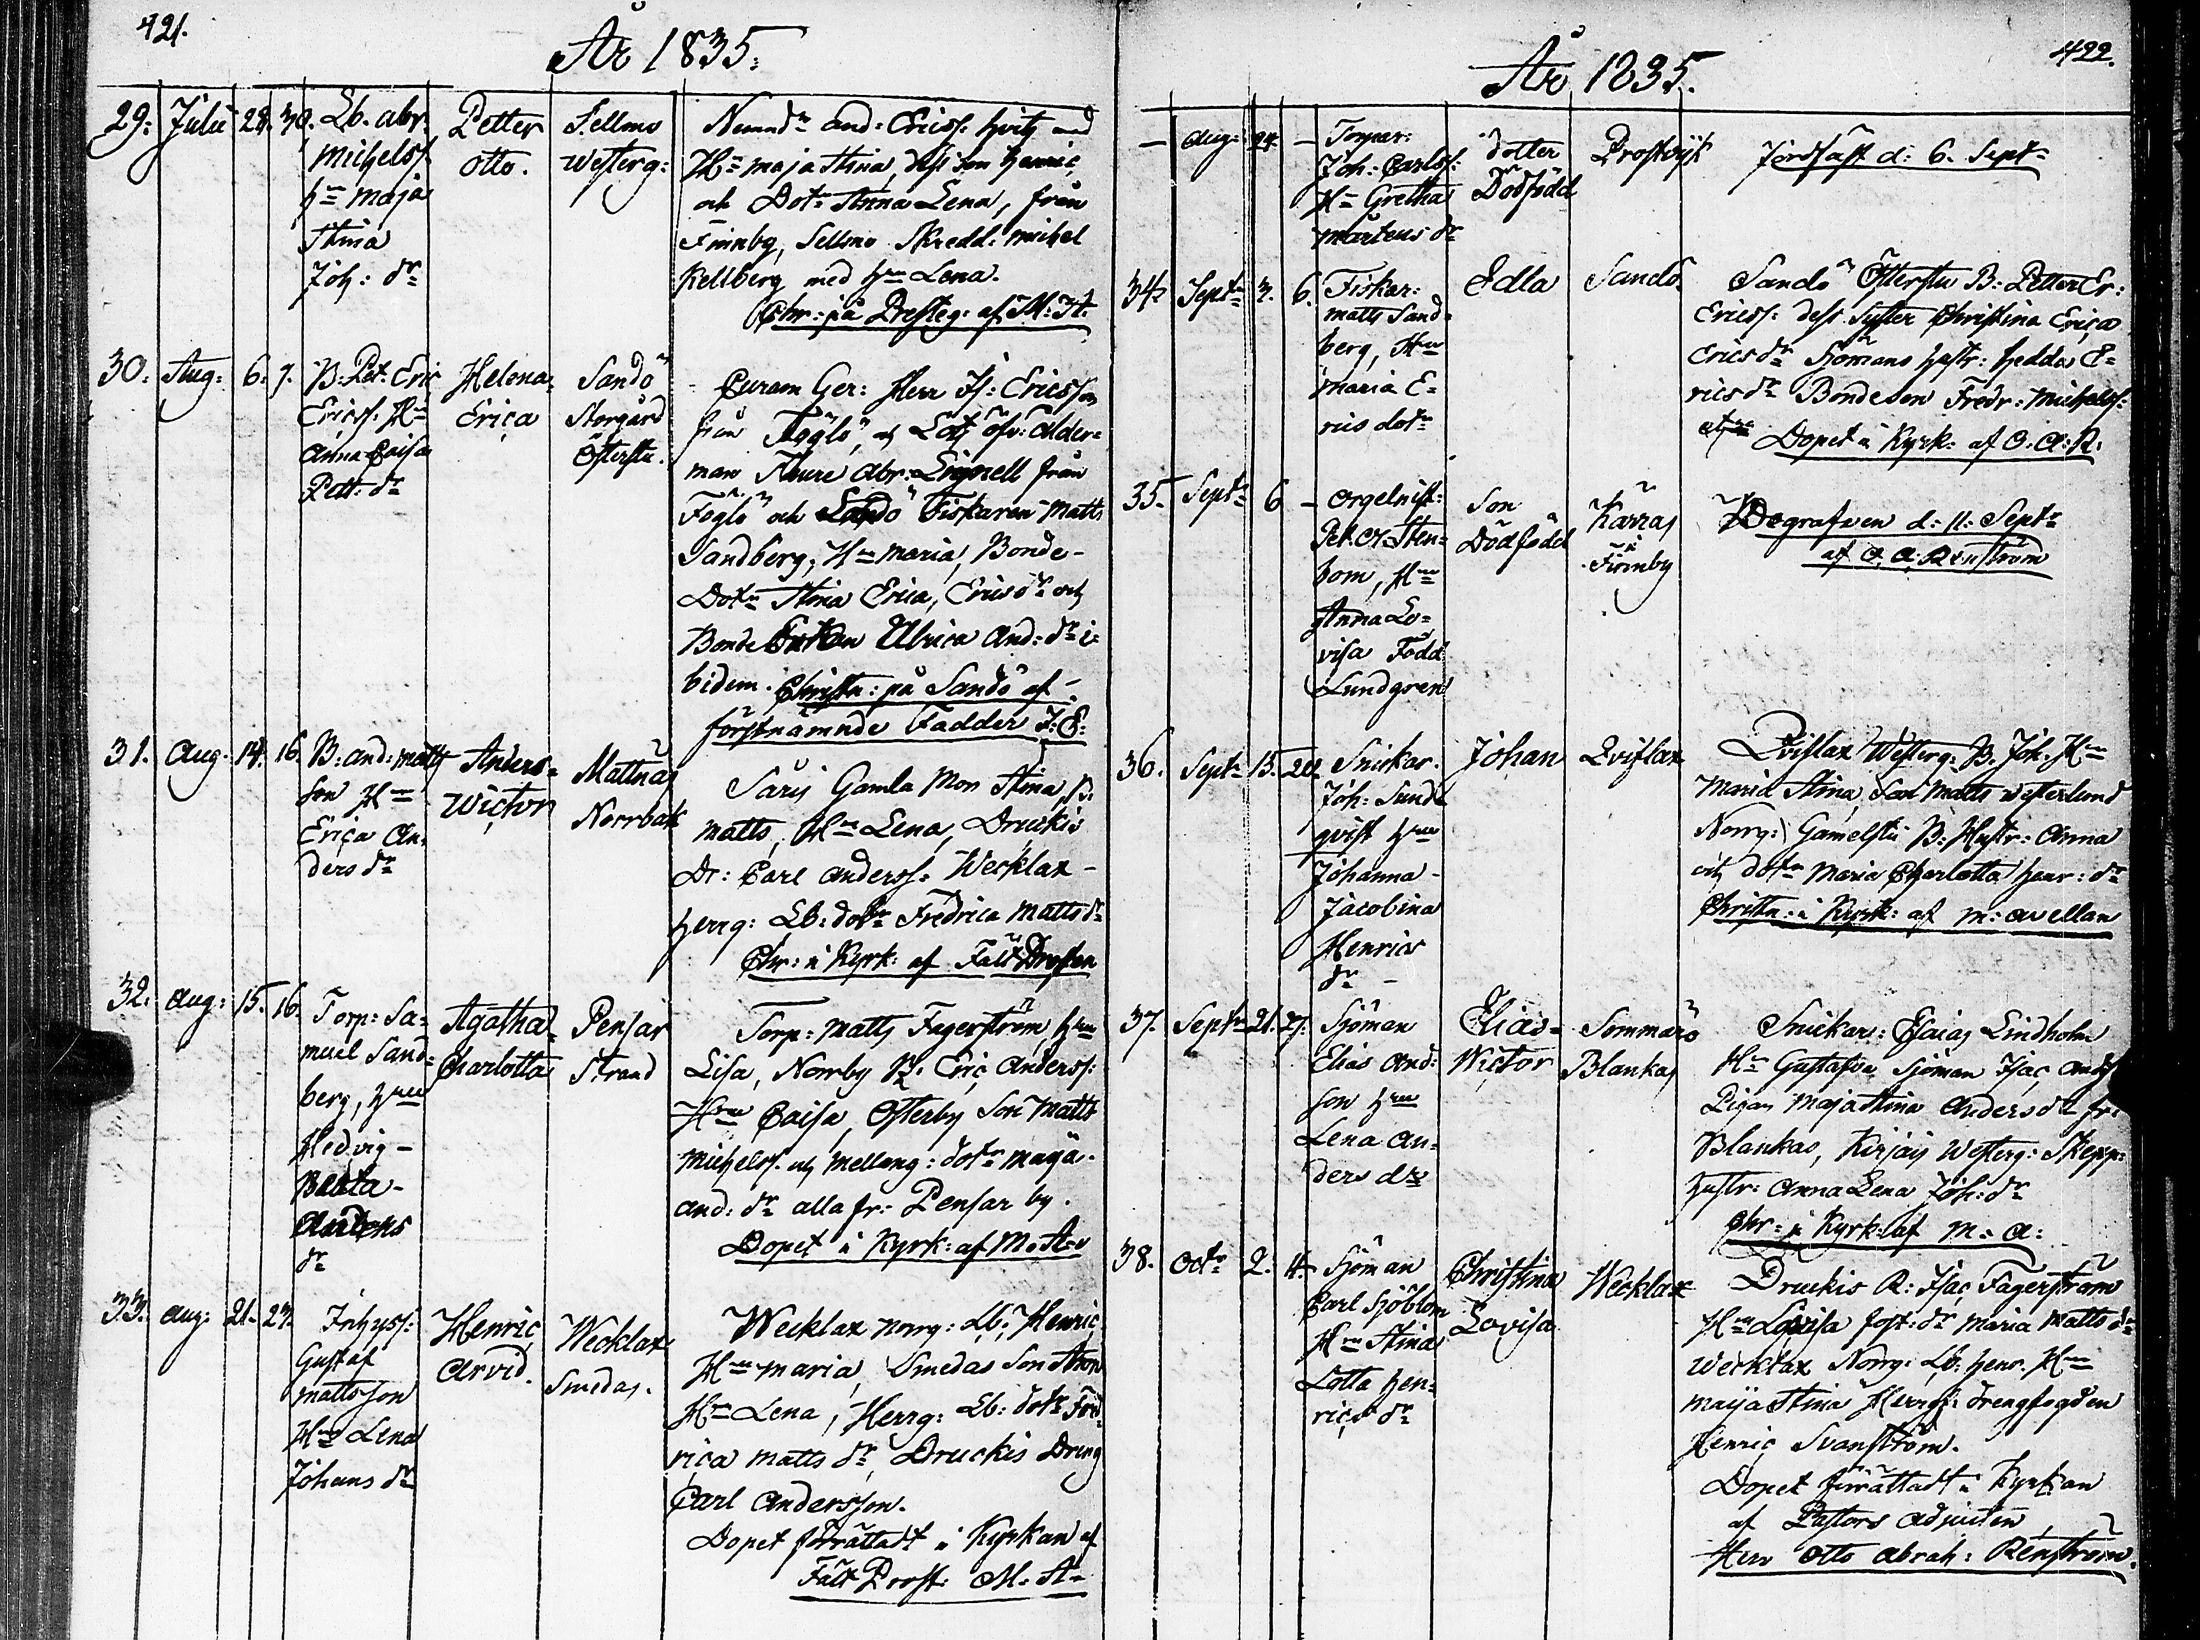 421.
År 1835.
29. Julii 28. 30. Lb. abr.
Michelss.
hn Maja
Stina
Joh: dr
Petter
Otto.
Sellmo
Westerg:
Nemndn And: Ericss:
Hn Maja Stina, dess son Henric,
och Dotr Anna Lena, från
Finnby, Sellmo Skredd: Michel
Kellberg med hun Lena.
Chr: på Presteg: af M: A:
30. Aug: 6. 7. B: Pet: Eric
Ericss: Hn
Anna Caisa
Pett: dr
Helena
Erica
Sandö
Storgård
Österstu.
Curam Ger: Herr Is: Ericsson
från Föglö, och Lots öfv: Ålder-
man Thure Abr: Lignell från
Föglö och Sandö Fiskaren Matts
Sandberg, Hn Maria, Bonde-
Dotrn Stina Erica, Ericsdr och
Bonde Ulrica And: dr i-
bidem. Christn: på Sandö af
förstnämnde Fadder I: E:
31. Aug. 14. 16. B: And: Matts
son Hn
Erica An-
ders dr
Anders
Wictor
Mattnäs
Norrbak
Gamla Mor Stina, B:
Matts, Hn Lena, Druckis
Dr: Carl Anderss: Wecklax
Herrg: Lb: dotr Fredrica Mattsdr
Chr: i Kyrk: af Fält Prosten
32. Aug: 15. 16. Torp: Sa-
muel Sand-
berg, hun
Hedvig
Beata
Anders
dr
Agatha
Charlotta
Pensar
Strand
Torp: Matts Fagerström, hun
Lisa, Norrby B: Eric Anderss:
Hun Caisa, Österby Son Matts
Michelss. och Melleng: dotr Maja
And: dr alla fr: Pensar by.
Dopet i Kyrk: af M: A:
33. Aug: 21. 23. Inhyss:
Gustaf
Mattsson
Hn Lena
Johans dr
Henric
Arvid.
Wecklax
Smedas.
Wecklax Norrg: Lb: Henric
Hn Maria, Smedas Son
Hn Lena, Herrg: Lb: dotr Fred-
rica Matts dr, Druckis Dreng
Carl Andersson.
Dopet förrättadt i Kyrkan af
Fält Prost: M: A-
422.
År 1835.
— Aug: 24. — Torpar:
Joh: Carlss:
Hn Gretha
Mårtens dr
dotter
Dödfödd
Prostvik
Jordfäst d: 6. Sept-
34. Septr 3. 6. Fiskar:
Matts Sand-
berg, Hun
Maria E-
rics dotr
Edla
Sandö
Sandö Österstu B: Petter Er:
Ericss: dess Syster Christina Erica
Ericsdr Sjömans hustr: Hedda E-
ricsdr Bondeson Fredr: Michelss:
Dopet i Kyrk: af O: A: R:
35. Septr 6 — Orgelnist:
Pet: Sten-
bom, Hun
Anna Lo-
visa Född
Lundgren
Son
Dödfödd
Kärras
i
Finnby
Begrafven d: 11. Septr
af O. A. Renström
36. Septr 15. 20 Snickar.
Joh: Sund-
qvist hun
Johanna
Jacobina
Henrics
dr
Johan
Qviflax
Qviflax Westerg: B. Joh. Hn
Maria Stina, Matts Westerlund
Norrg: Gamelstu B: Hustr: Anna
och dotr Maria Charlotta Henr: dr
Christn: i Kyrk: af M: Avellan
37. Septr 21. 27. Sjöman
Elias And:
son hun
Lena An-
ders dr
Elias
Wictor
Sommarö
Blankas
Snickar: Esaias Lindholm
Hn Gustafva Sjöman Isac Andss
Pigan Maja Stina Andersdr fr:
Blankas, Kirjais Westerg: Skepp:
hustr: Anna Lena Joh: dr
Chr: i Kyrk: af M: A:
38. Octr 2. 4. Sjöman
Carl Sjöblom
Hn Stina
Lotta Hen-
rics dr
Christina
Lovisa
Wecklax
Druckis R: Isac Fagerström
Hn Lovisa fost: dr Maria Mattsdr
Wecklax Norrg: Lb: Henr. Hn
Maija Stina Herrg: Drengfogden
Henric Svanström.
Dopet förrättadt i Kyrkan
af Pastors Adjuncten
Herr Otto Abrah: Renström.